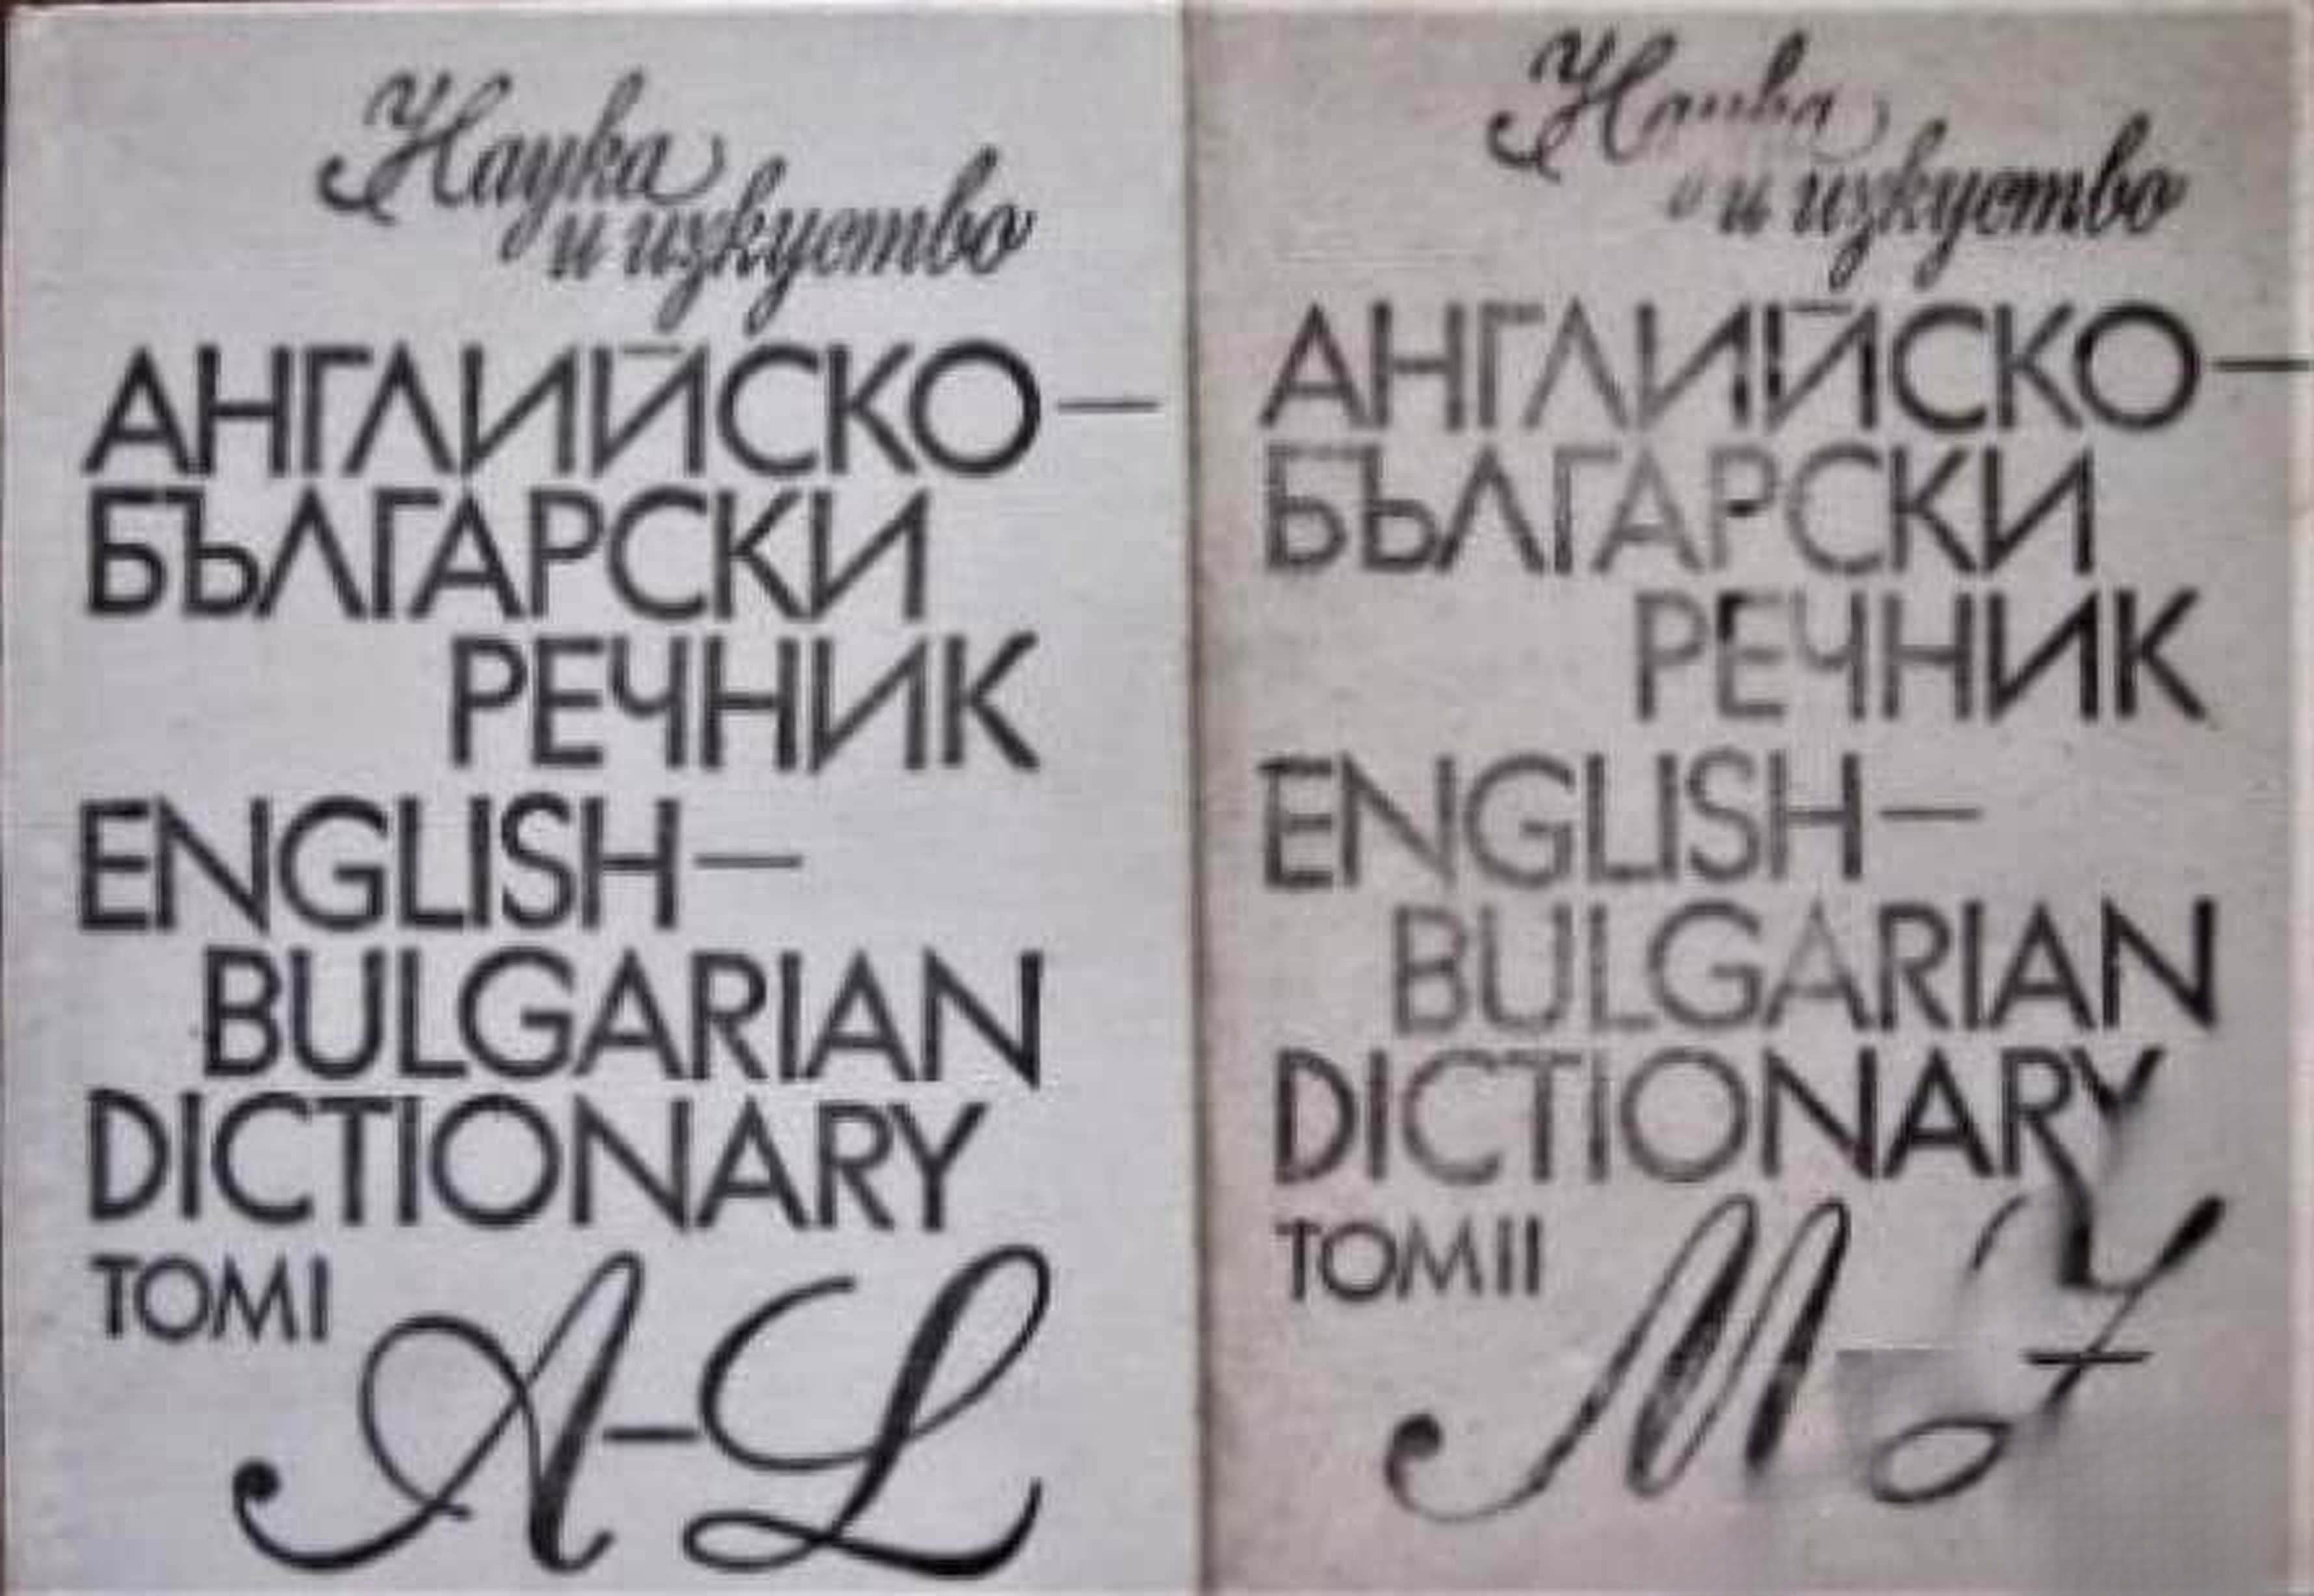 Наука
и изкуство
АНГЛИЙСКО—
БЪЛГАРСКИ
РЕЧНИК
ENGLISH—
BULGARIAN
DICTIONARY
ТОМ I
A–L
Наука
и изкуство
АНГЛИЙСКО—
БЪЛГАРСКИ
РЕЧНИК
ENGLISH—
BULGARIAN
DICTIONARY
ТОМ II
M